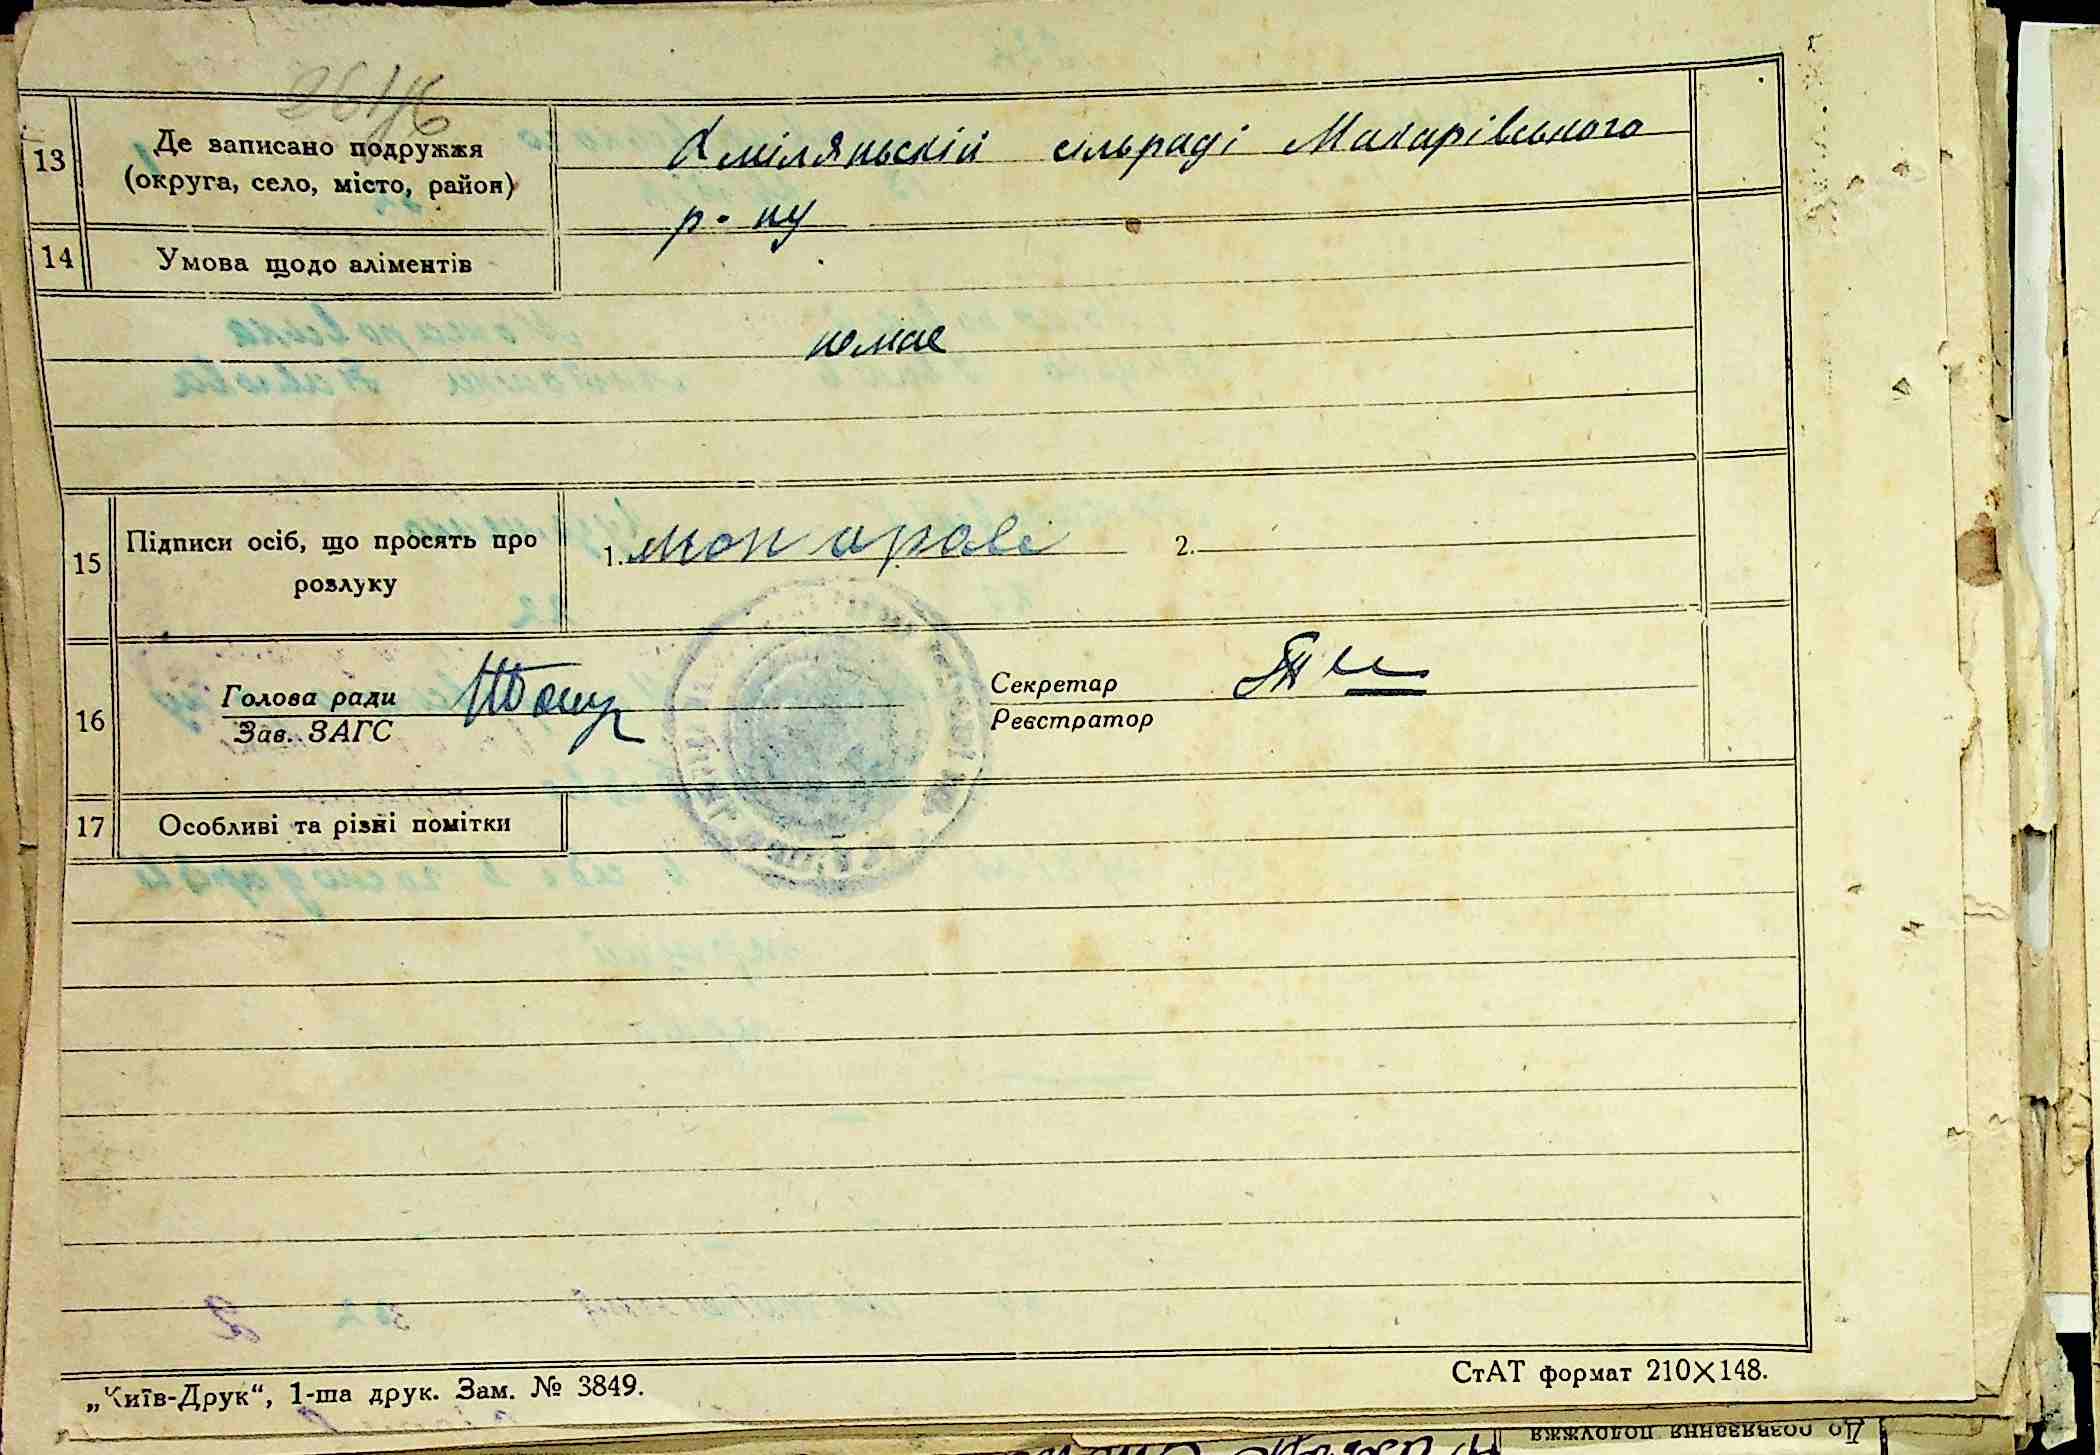 264/6
13
Де записано подружжя
(округа, село, місто, район)
Хміляньскій сільраді Макарівського
р-ну
14
Умова щодо аліментів
немає
15
Підписи осіб, що просять про
розлуку
1.
2.
16
Голова ради
Зав. ЗАГС
Секретар
Реєстратор
17
Особливі та різні помітки
„Київ-Друк“, 1-ша друк. Зам. № 3849.
СтАТ формат 210×148.